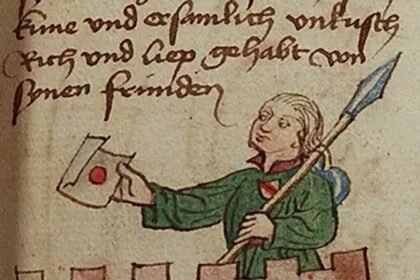 kune und ersamlich unkusch
Rich und liep gehabt von
synen frunden